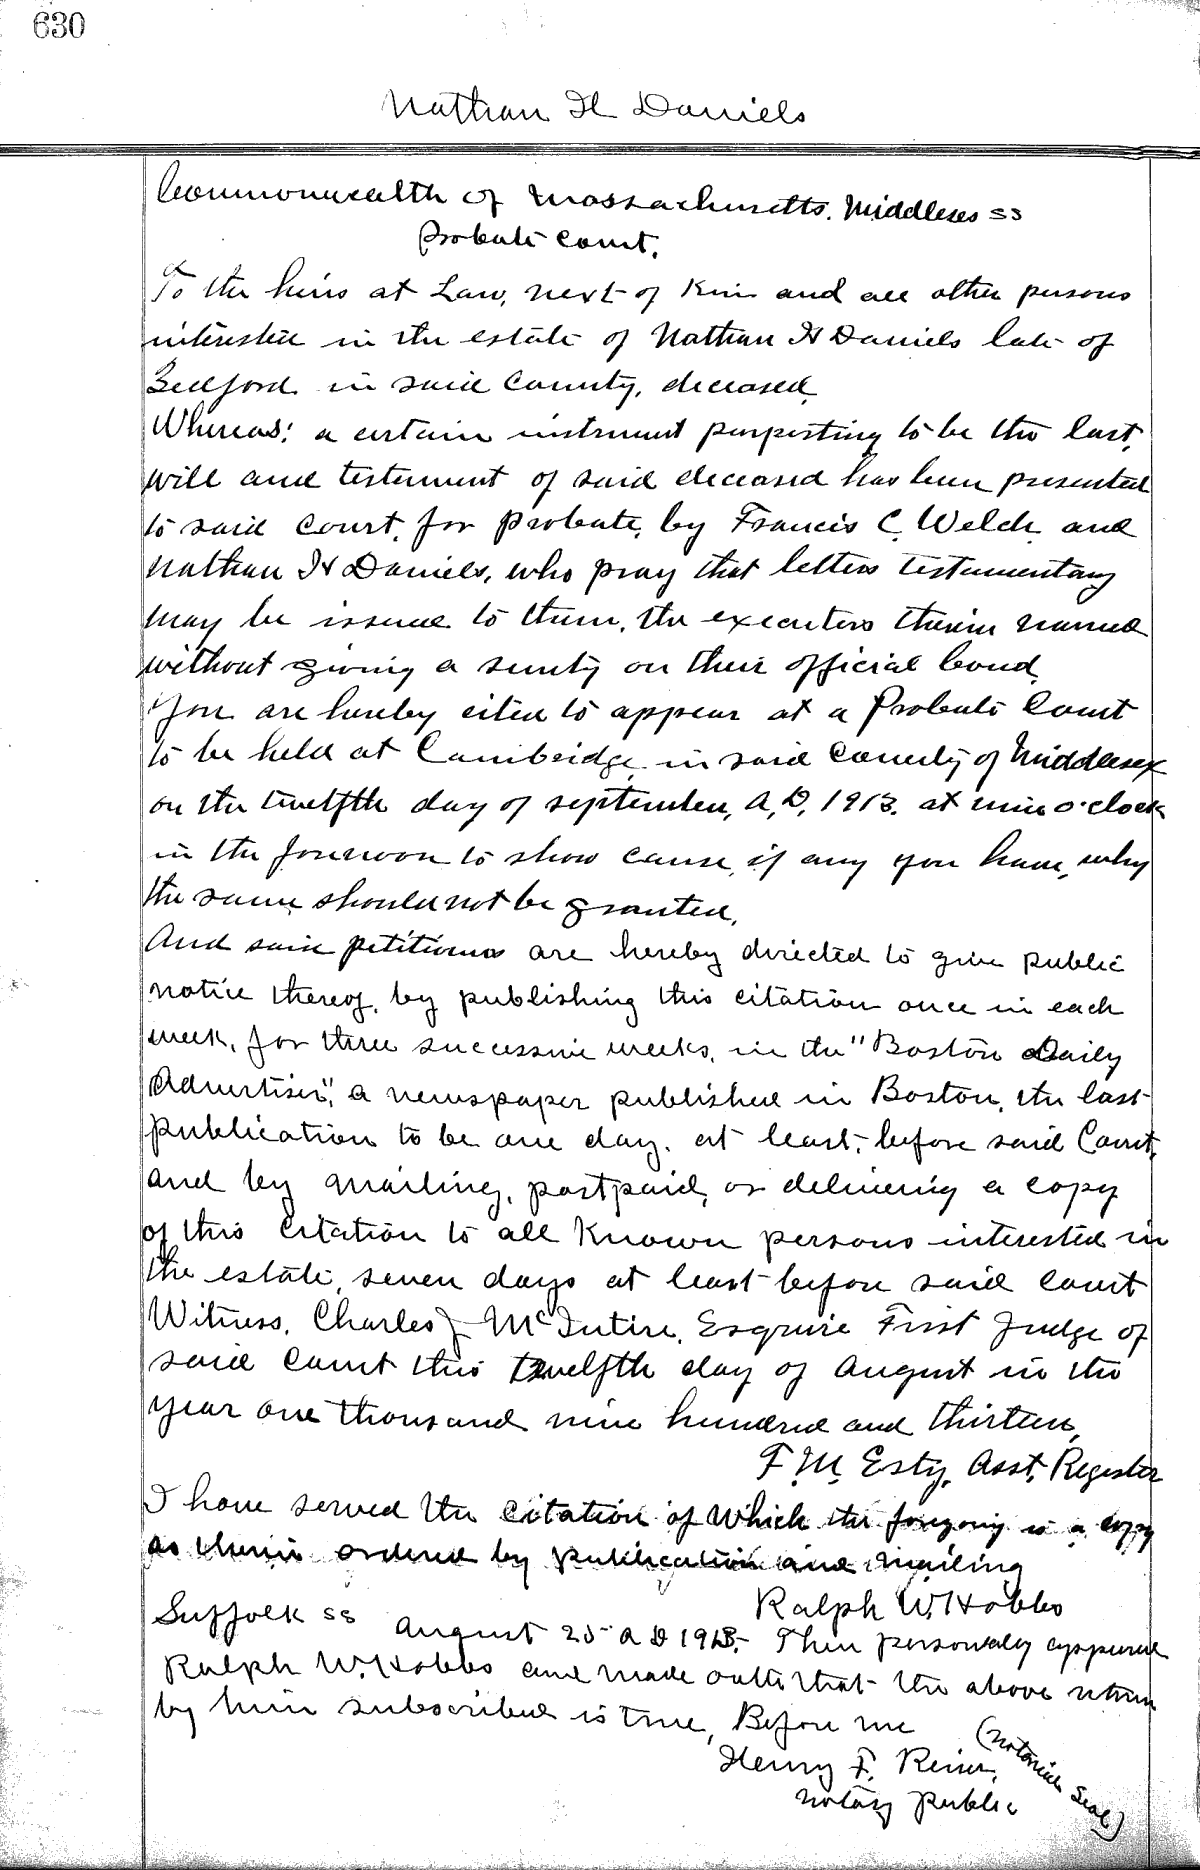 630
Nathan H Daniels
Commonwealth of Massachusetts. Middlesex ss
Probate Court.
To the heirs at Law, next of Kin and all other persons
interested in the estate of Nathan H Daniels late of
Bedford in said County, deceased.
Whereas: a certain instrument purporting to be the last
will and testament of said deceased has been presented
to said Court, for Probate, by Francis C. Welch and
Nathan H Daniels, who pray that letters testamentary
may be issued to them, the executors therein named
without giving a surety on their official bond.
You are hereby cited to appear at a Probate Court
to be held at Cambridge in said County of Middlesex
on the twelfth day of september, A.D. 1913. at nine o'clock
in the forenoon to show cause, if any you have, why
the same should not be granted.
And said petitioners are hereby directed to give public
notice thereof, by publishing this citation once in each
week, for three successive weeks, in the "Boston Daily
Advertiser", a newspaper published in Boston, the last
publication to be one day, at least, before said Court,
and by mailing, postpaid, or delivering a copy
of this citation to all Known persons interested in
the estate, seven days at least before said Court
Witness, Charles J McIntire, Esquire First Judge of
said Court this twelfth day of August in the
year one thousand nine hundred and thirteen,
F. M. Esty, Asst, Register
I have served the citation of which the foregoing is a copy
as therein ordered by publication and mailing
Ralph W. Hobbs
Suffolk ss August 25 A D 1913. Then personally appeared
Ralph W. Hobbs and made oath that the above return
by him subscribed is true, Before me
Henry F. (Notarial Seal)
Notary Public